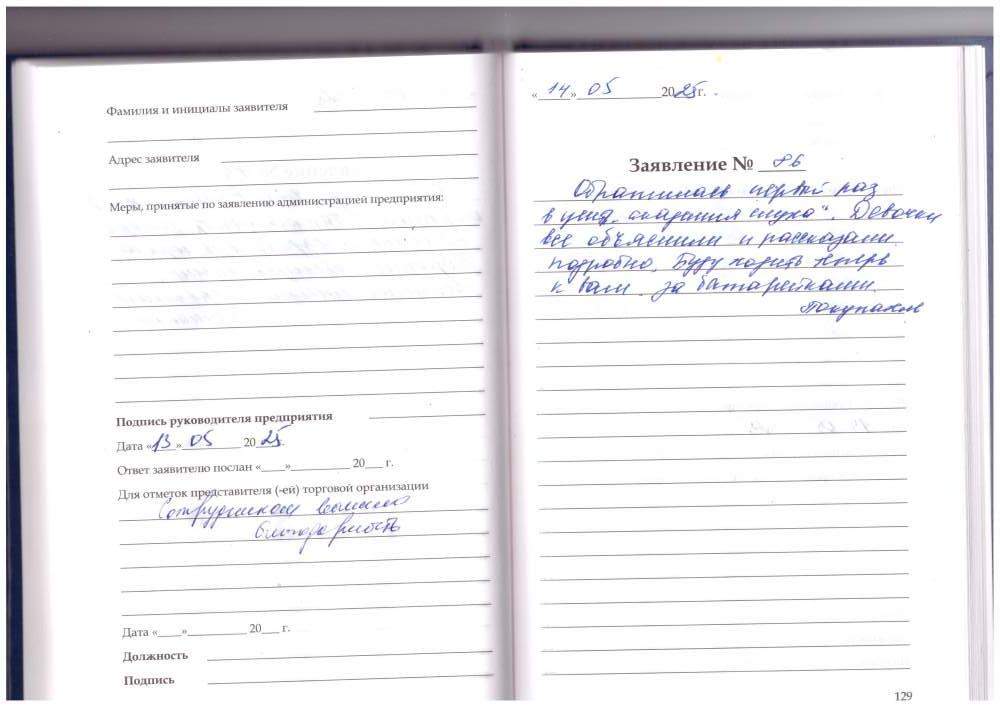 Фамилия и инициалы заявителя
Адрес заявителя
Меры, принятые по заявлению администрацией предприятия:
Подпись руководителя предприятия
Дата «13» 05 2025.
Ответ заявителю послан «____»__________ 20___ г.
Для отметок представителя (-ей) торговой организации
Сотрудникам
благодарность
Дата «____»__________ 20___ г.
Должность
Подпись
«14» 05 2025г.
Заявление № 86
Обратилась первый раз
в центр „Академия слуха“. Девочки
все объяснили и рассказали
подробно. Буду ходить теперь
к вам за батарейками.
129